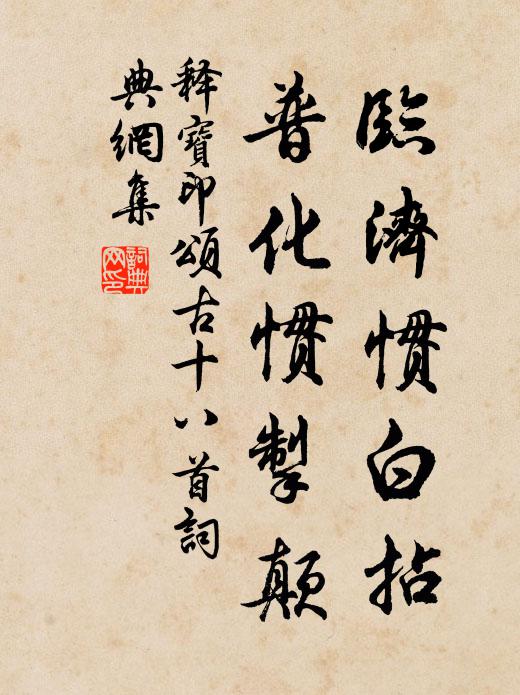 臨濟慣白拈
普化慣掣顛
释寶印頌古十八首詞
典網集
詞典
网印